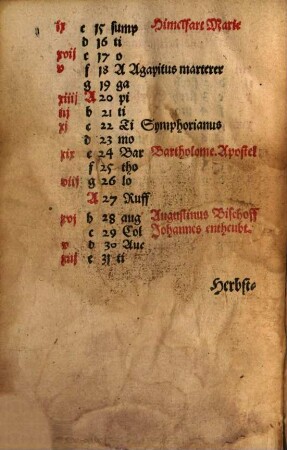 ix c 15 sump Himelfart Marie
d 16 ti
xvij e 17 o
v f 18 A Agapitus marterer
g 19 ga
xiiij A 20 pi
iij b 21 ti
xj c 22 Ti Symphorianus
d 23 mo
xix e 24 Bar Bartholome. Apostel.
f 25 tho
viij g 26 lo
A 27 Ruff
xvj b 28 aug Augustinus Bischoff
c 29 Col Johannes entheubt.
v d 30 Aue
xiij e 31 ti
Herbst-